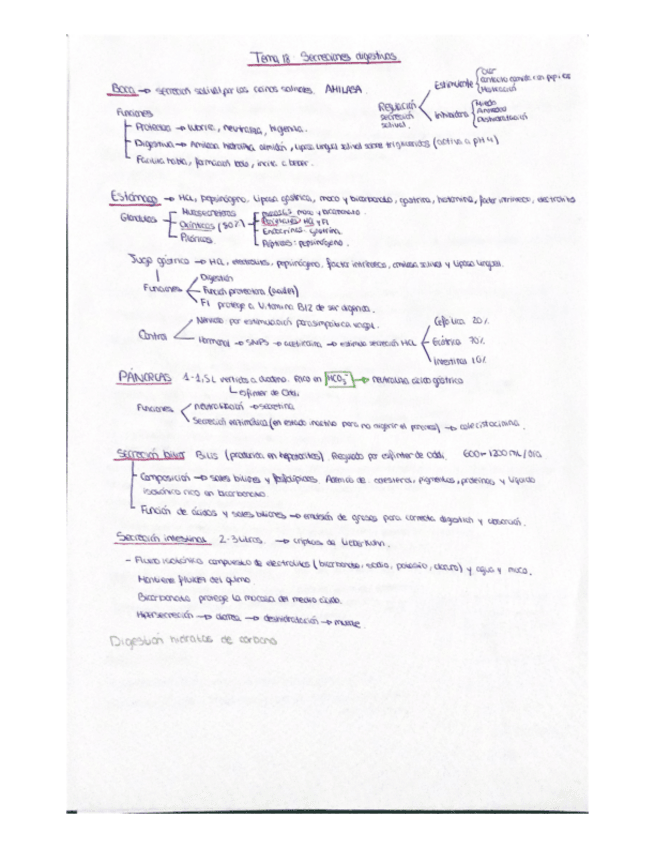 Tema 18 Secreciones digestivas
Boca → secreción salival por las AMILASA.
Estimulante
Olor
Masticación
Regulación secreción salival
Inhibidora
Miedo
Deshidratación
Funciones
Protectora → lubrica, neutraliza, higieniza.
Digestiva → Amilasa hidroliza almidón, lipasa lingual actúa sobre triglicéridos (activa a pH 4)
Facilita habla, formación bolo, incita a beber.
Estómago → HCl, pepsinógeno, lipasa gástrica, moco y bicarbonato, gastrina, histamina, factor intrínseco, electrolitos
Glándulas
Mucosecretoras
Oxínticas (80%)
Pilóricas
moco y bicarbonato.
Parietales: HCl y FI
Endocrinas: gastrina
Pépticas: pepsinógeno.
Jugo gástrico → HCl, electrolitos, pepsinógeno, factor intrínseco, amilasa salival y lipasa lingual.
Funciones
Digestión
Función protectora (acidez)
FI protege a Vitamina B12 de ser digerida.
Control
Nervioso por estimulación parasimpática vagal.
Hormonal → → estimula secreción HCl
Cefálica 20%
Gástrica 70%
Intestinal 10%
PÁNCREAS 1-1,5L vertidos a duodeno. Rico en HCO3- → neutraliza ácido gástrico
Esfínter de Oddi.
Funciones
neutralización → secretina
Secreción enzimática (en estado inactivo para no digerir el páncreas) → colecistocinina.
Secreción biliar Bilis (producida en hepatocitos) Regulado por esfínter de Oddi. 600-1200 mL/día
Composición → sales biliares y fosfolípidos. Además de colesterol, pigmentos, proteínas y líquido
isotónico rico en bicarbonato.
Función de ácidos y sales biliares → emulsión de grasas para correcta digestión y absorción.
Secreción intestinal 2-3 litros. → criptas de Lieberkühn.
- Fluido isotónico compuesto de electrolitos (bicarbonato, sodio, potasio, cloruro) y agua y moco.
Mantiene fluidez del quimo.
Bicarbonato protege la mucosa del medio ácido.
Hipersecreción → diarrea → deshidratación → muerte.
Digestión hidratos de carbono